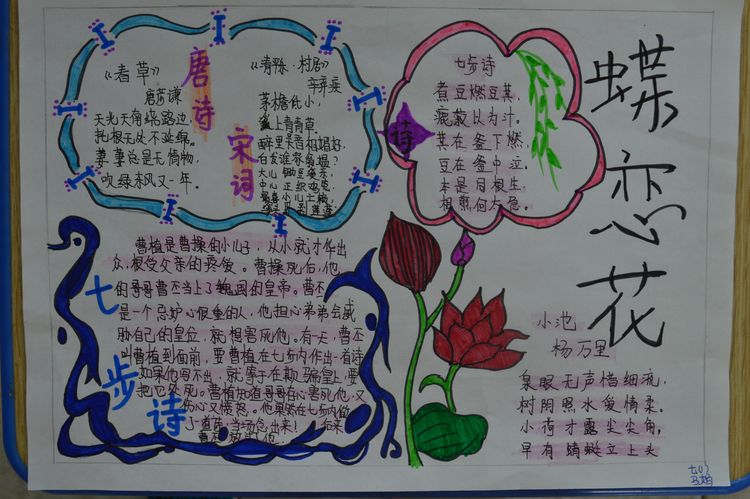 蝶恋花
唐诗
宋词
《春草》
唐彦谦
天北天南绕路边，
托根无处不延绵。
萋萋总是无情物，
吹绿东风又一年。
《清平乐·村居》
辛弃疾
茅檐低小，
溪上青青草。
醉里吴音相媚好，
白发谁家翁媪？
大儿锄豆溪东，
中儿正织鸡笼。
最喜小儿亡赖，
诗
七步诗
煮豆燃豆萁，
漉菽以为汁。
萁在釜下燃，
豆在釜中泣。
本是同根生，
相煎何太急。
七步诗
曹植是曹操的小儿子，从小就才华出
众，很受父亲的疼爱。曹操死后，他
的哥哥曹丕当上了魏国的皇帝。曹丕
是一个忌妒心很重的人，他担心弟弟会威
胁自己的皇位，就想害死他。有一天，曹丕
叫曹植到面前，要曹植在七步内作出一首诗
如果他写不出，就等于在欺骗皇上，要
把它处死。曹植知道哥哥存心害死他，又
伤心又愤怒。他果然在七步内做
了道诗，当场念出来！后来
小池
杨万里
泉眼无声惜细流，
树阴照水爱情柔。
小荷才露尖尖角，
早有蜻蜓立上头